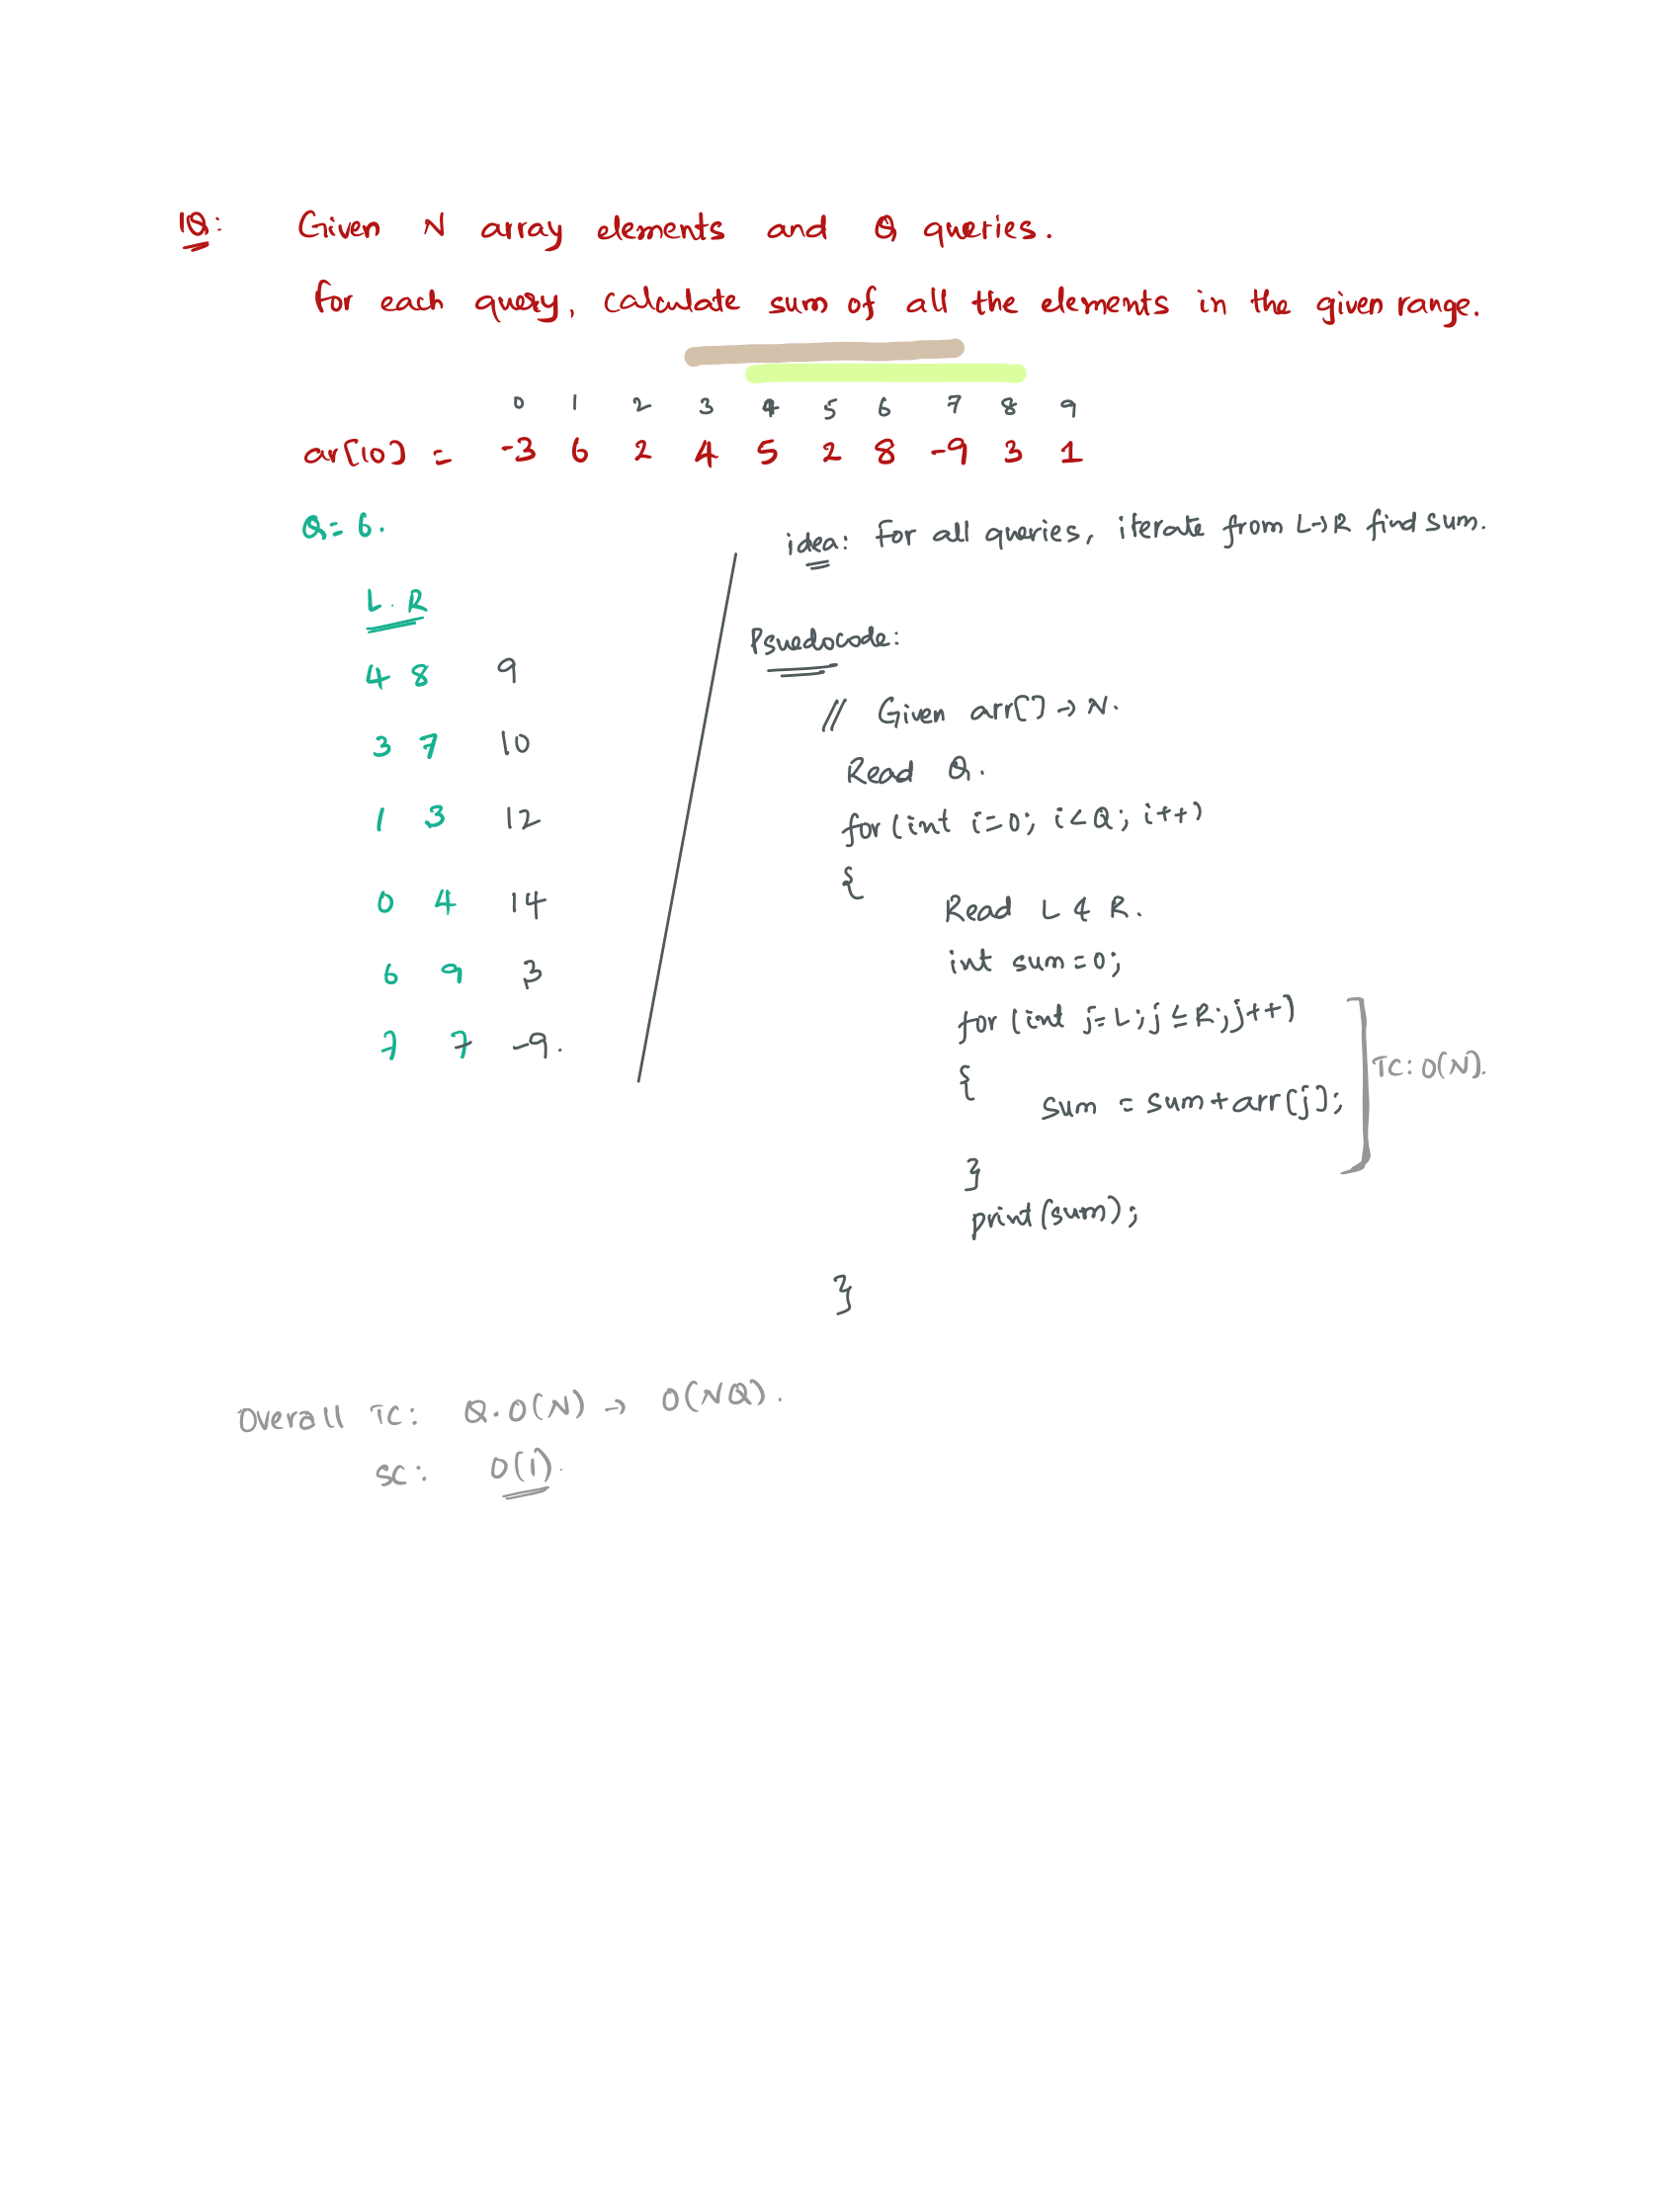 1Q: Given N array elements and Q queries.
For each query, calculate sum of all the elements in the given range.
0 1 2 3 4 5 6 7 8 9
ar[10] = -3 6 2 4 5 2 8 -9 3 1
Q= 6.
idea: For all queries, iterate from L→R find sum.
L . R
4 8 9
3 7 10
1 3 12
0 4 14
6 9 3
7 7 -9.
Psuedocode:
// Given arr[] → N.
Read Q.
for(int i=0; i<Q; i++)
{
Read L & R.
int sum=0;
for(int j=L; j≤R; j++)
{
sum = sum+arr[j];
}
TC: O(N).
print(sum);
}
Overall TC: Q.O(N) → O(NQ).
SC: O(1).